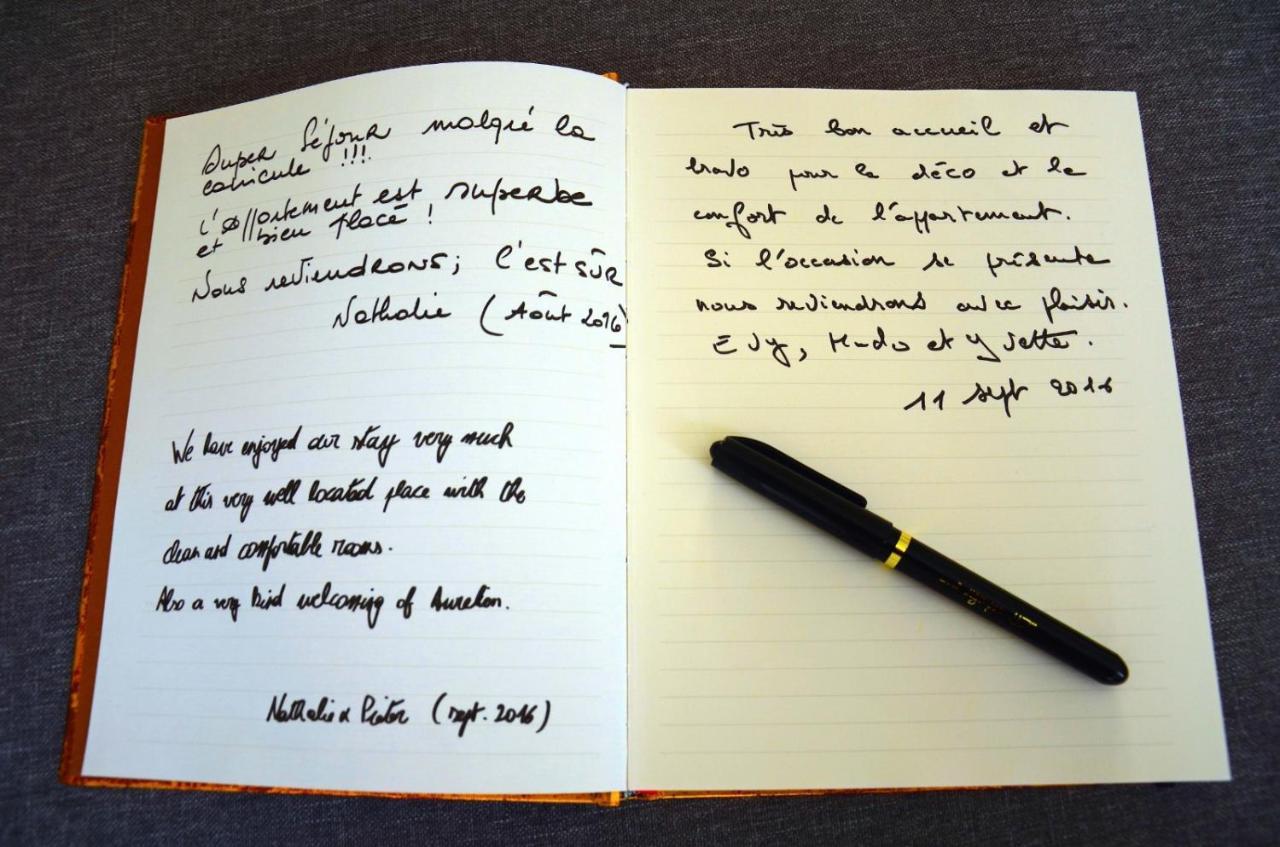 Super Séjour malgré la
canicule !!!
L'appartement est superbe
et bien placé !
Nous reviendrons; C'est sûr
Nathalie (Août 2016)
We have enjoyed our stay very much
at this very well located place with the
clean and comfortable rooms.
Also a very kind welcoming of Aurelien.
Nathalie & Pieter (sept. 2016)
Très bon accueil et
bravo pour la déco et le
confort de l'appartement.
Si l'occasion se présente
nous reviendrons avec plaisir.
Evy, et Yvette.
11 sept 2016